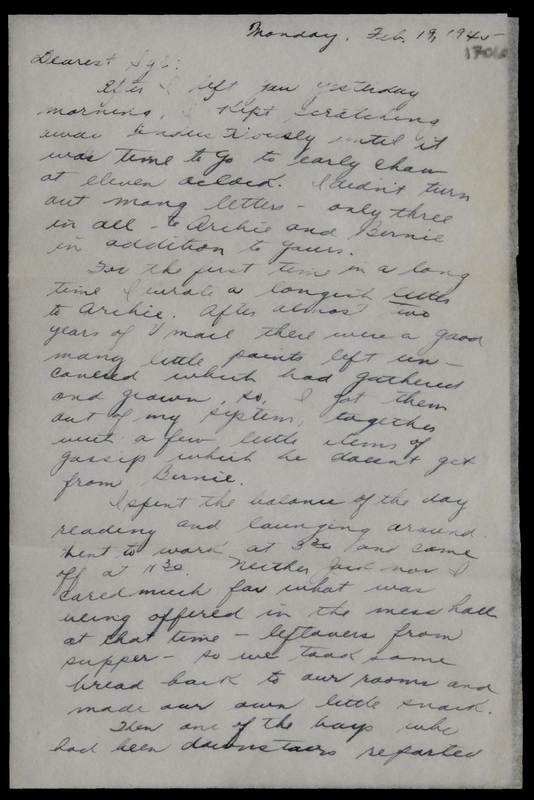 Monday, Feb. 19, 1945
1706
Dearest Syl:
After I left you yesterday
morning, I kept scratching
away industriously until it
was time to go to early chow
at eleven oclock. I didn't turn
out many letters - only three
in all - to Archie and Bernie
in addition to yours.
For the first time in a long
time I wrote a longish letter
to Archie. After almost two
years of V mail there were a good
many little points left un-
covered which had gathered
and grown, so, I got them
out of my system, together
with a few little items of
gossip which he doesn't get
from Bernie.
I spent the balance of the day
reading and lounging around
Went to work at 3 30 and came
off at 11 30. Neither Jack nor I
cared much for what was
being offered in the mess hall
at that time - leftovers from
supper - so we took some
bread back to our rooms and
made our own little snack.
Then one of the boys who
had been downstairs reported